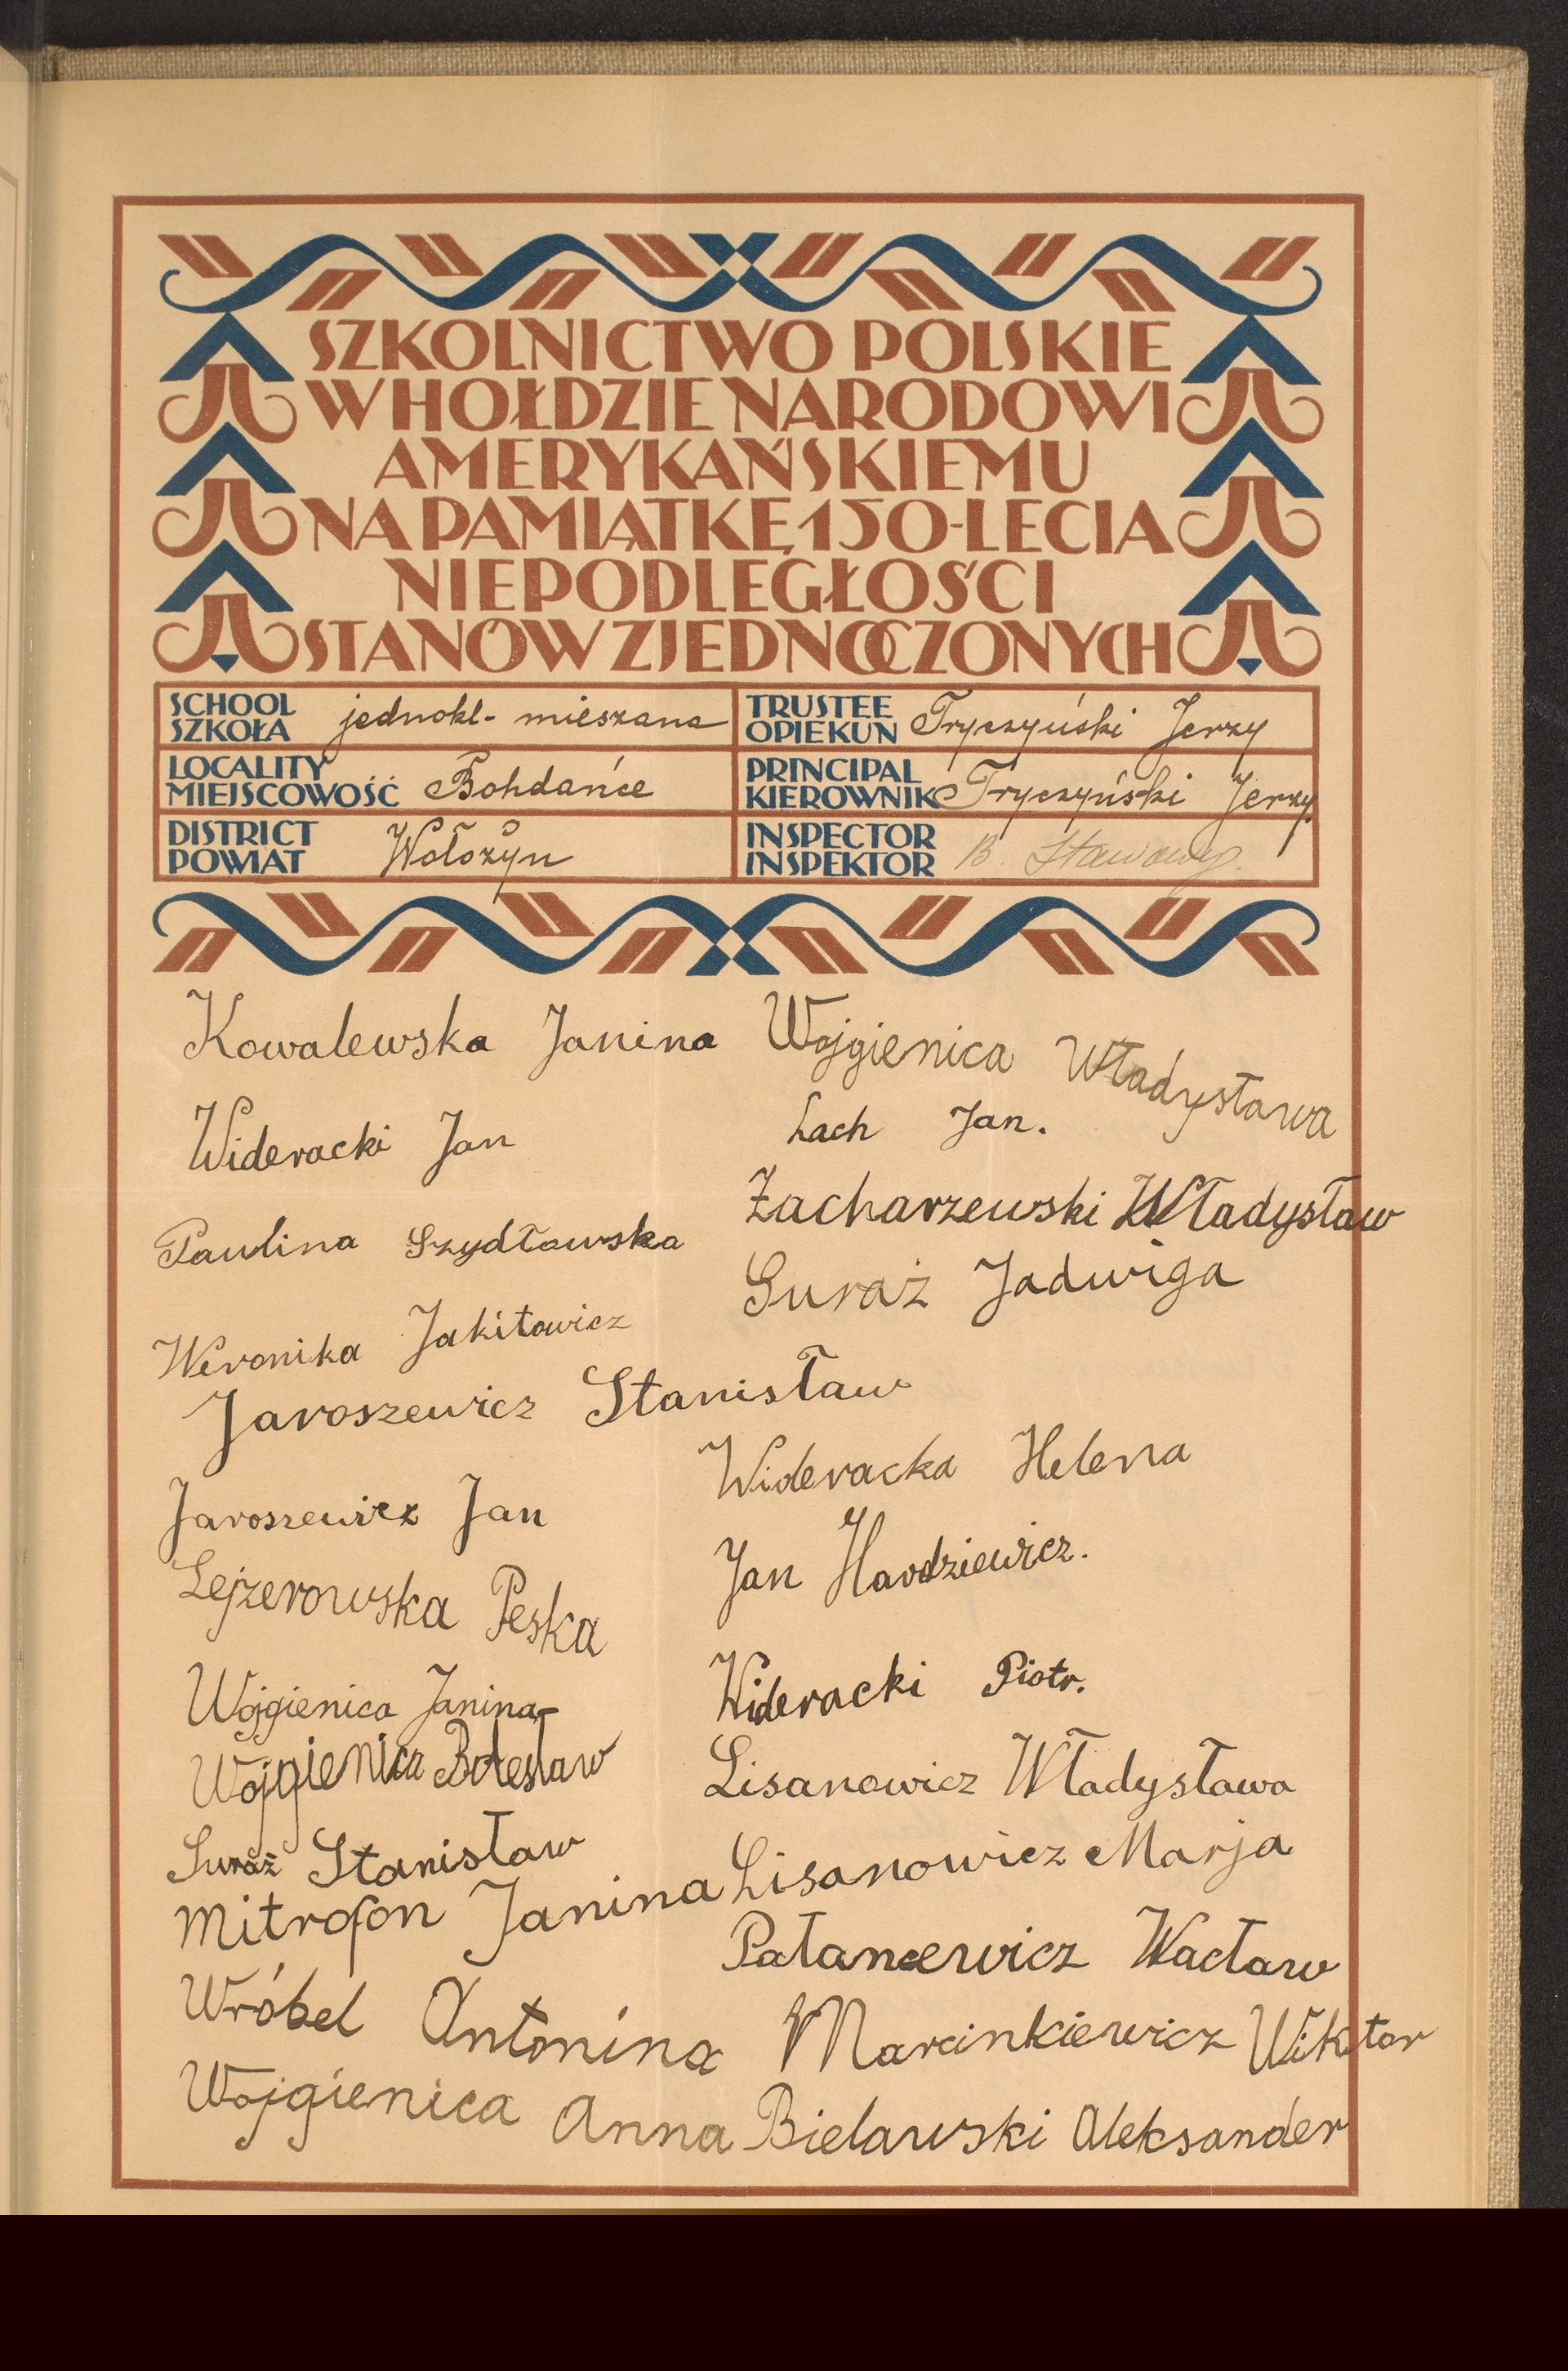 SZKOLNICTWO POLSKIE
W HOŁDZIE NARODOWI
AMERYKAŃSKIEMU
NA PAMIĄTKĘ 150-LECIA
NIEPODLEGŁOŚCI
STANÓW ZJEDNOCZONYCH
SCHOOL
SZKOŁA jednokl- mieszana
TRUSTEE
OPIEKUN Tryczyński Jerzy
LOCALITY
MIEJSCOWOŚĆ Bohdańce
PRINCIPAL
KIEROWNIK Tryczyński Jerzy
DISTRICT
POWIAT Wołożyn
INSPECTOR
INSPEKTOR B. Stawowy.
Kowalewska Janina
Wideracki Jan
Paulina Szydłowska
Weronika Jakitowicz
Jaroszewicz Stanisław
Jaroszewicz Jan
Lejzerowska Peska
Wojgienica Janina
Wojgienica Bolesław
Suraż Stanisław
Mitrofon Janina
Wróbel Antonina
Wojgienica Anna
Wojgienica Władysława
Lach Jan.
Zacharzewski Władysław
Suraż Jadwiga
Wideracka Helena
Jan Hardziewicz.
Wideracki Piotr.
Lisanowicz Władysława
Lisanowicz Marja
Pałancewicz Wacław
Marcinkiewicz Wiktor
Bielawski Aleksander